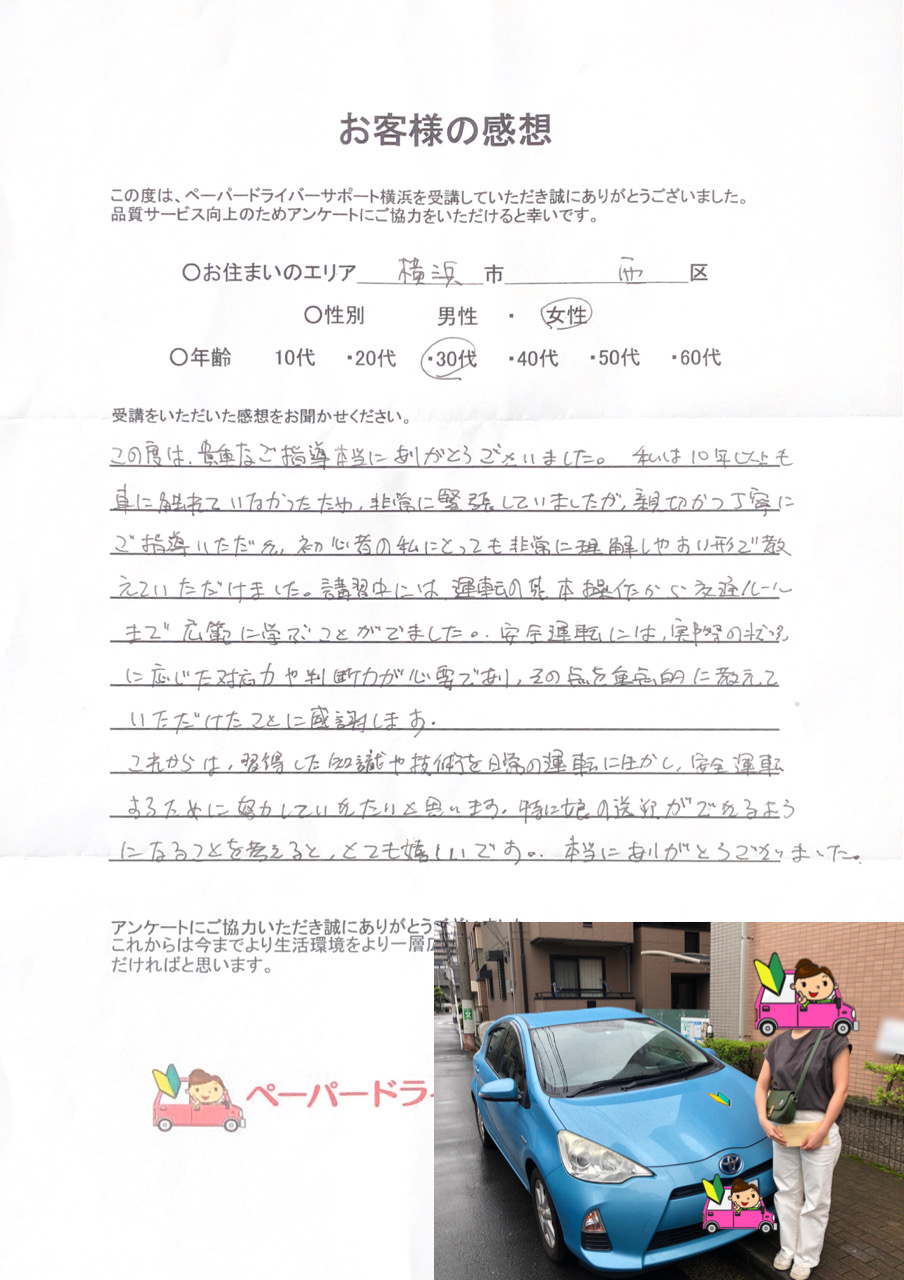 お客様の感想
この度は、ペーパードライバーサポート横浜を受講していただき誠にありがとうございました。
品質サービス向上のためアンケートにご協力をいただけると幸いです。
〇お住まいのエリア 横浜 市 西 区
〇性別 男性 ・ 女性
〇年齢 10代 ・20代 ・30代 ・40代 ・50代 ・60代
受講をいただいた感想をお聞かせください。
この度は、貴重なご指導本当にありがとうございました。 私は10年以上も
車に触れていなかったため、非常に緊張していましたが、親切かつ丁寧に
ご指導いただき、初心者の私にとっても非常に理解しやすい形で教
えていただけました。講習中には、運転の基本操作から交通ルール
まで広範に学ぶことができました。安全運転には、実際の状況
に応じた対応力や判断力が必要であり、その点を重点的に教えて
いただけたことに感謝します。
これからは、習得した知識や技術を日常の運転に生かし、安全運転
するために努力していきたいと思います。特に娘の送迎ができるよう
になることを考えると、とても嬉しいです。本当にありがとうございました。
アンケートにご協力いただき誠にありがとうございました
これからは今までより生活環境をより一層広
だければと思います。
ペーパードライ
文